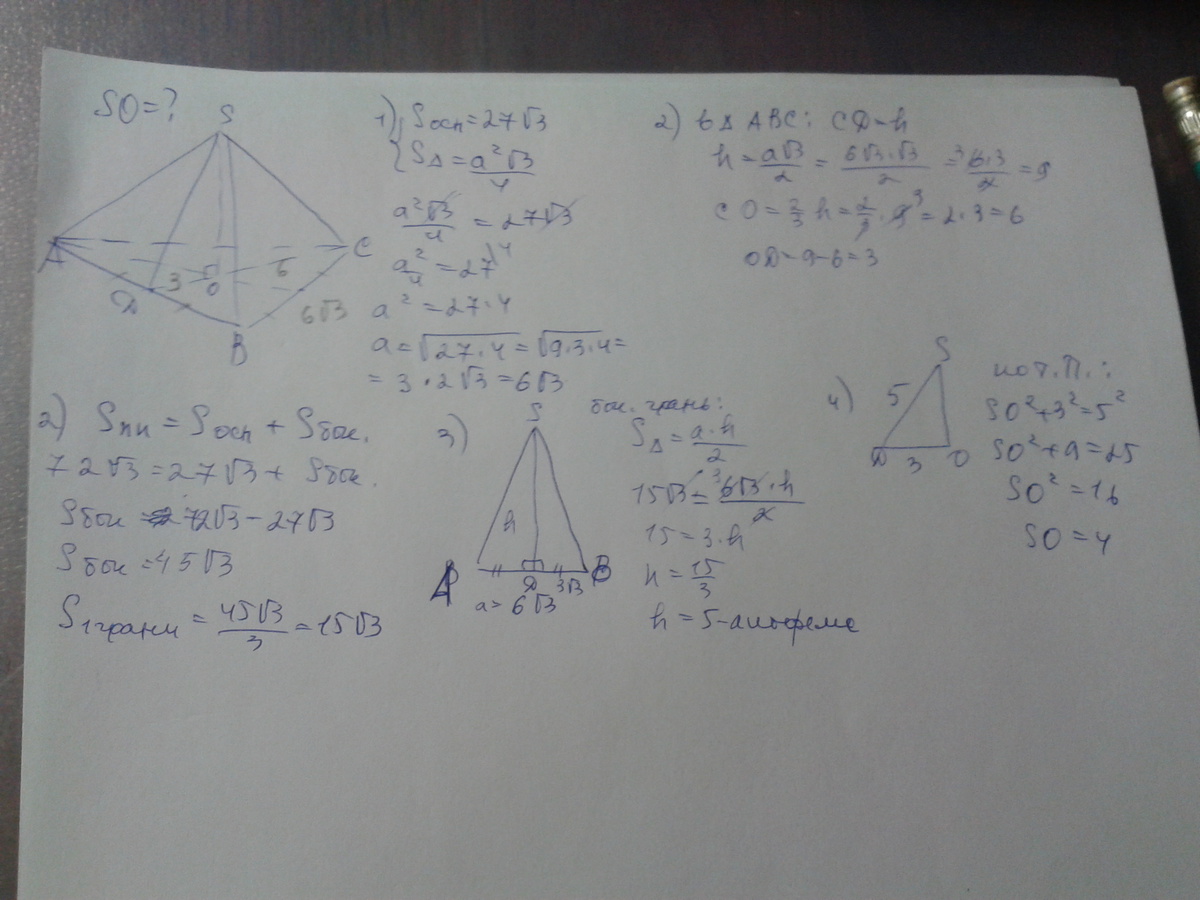 SO=?
S
A
C
D
3
O
6
6√3
B
1) { Sосн=27√3
S∆=a²√3/4
a²√3/4 = 27√3
a²/4 = 27
a² = 27·4
a=√27·4=√9·3·4=
= 3·2√3=6√3
2) в ∆ ABC: CD=h
h=a√3/2 = 6√3·√3/2 = 6·3/2 = 9
CO=2/3 h=2/3·9=2·3=6
OD=9-6=3
2) Sпп = Sосн + Sбок.
72√3=27√3+ Sбок.
Sбок = 72√3-27√3
Sбок =45√3
S1грани = 45√3/3 =15√3
3)
S
h
A
D
B
3√3
a= 6√3
бок. грань:
S∆=a·h/2
15√3=6√3·h/2
15=3·h
h=15/3
h=5-апофема
4)
S
5
D
3
O
по т.П.:
SO²+3²=5²
SO²+9=25
SO²=16
SO=4